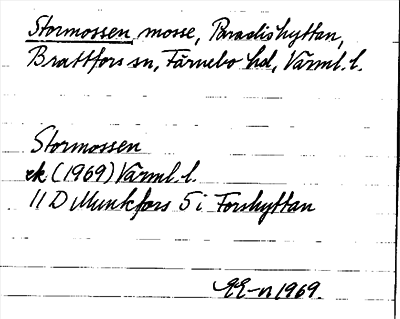 Stormossen, mosse, Paradishyttan,
Brattfors sn, Färnebo hd, Värml. l.
Stormossen
ek (1969) Värml. l.
11 D Munkfors 5 i Forshyttan
1969.